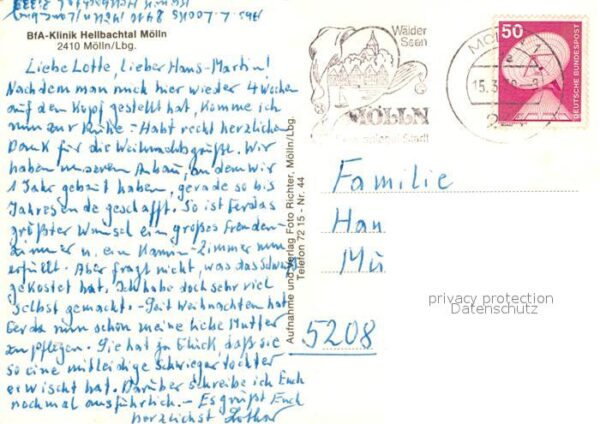 BfA-Klinik Hellbachtal Mölln
2410 Mölln/Lbg.
Liebe Lotte, lieber Hans-Martin!
Nachdem man mich hier wieder 4 Wochen
auf den Kopf gestellt hat, komme ich
nun zur Ruhe - Habt recht herzlichen
Dank für die Weihnachtsgrüße. Wir
haben unseren Anbau, an dem wir
1 Jahr gebaut haben, gerade so bis
Jahresende geschafft. So ist Gerdas
größter Wunsch ein großes Fremden-
zimmer u. ein Kamin-Zimmer nun
erfüllt. Aber fragt nicht, was das
gekostet hat. Ich habe doch sehr viel
selbst gemacht. - Seit Weihnachten hat
Gerda nun schon meine liebe Mutter
zu pflegen. Sie hat ja Glück, daß sie
so eine mitleidige Schwiegertochter
erwischt hat. Darüber schreibe ich Euch
nochmal ausführlich. - Es grüßt Euch
herzlichst Lothar
Aufnahme und Verlag Foto Richter, Mölln/Lbg.
Telefon 72 15 - Nr. 44
Wälder
Seen
MÖLLN
50
DEUTSCHE BUNDESPOST
Familie
Han
Mü
5208
privacy protection
Datenschutz